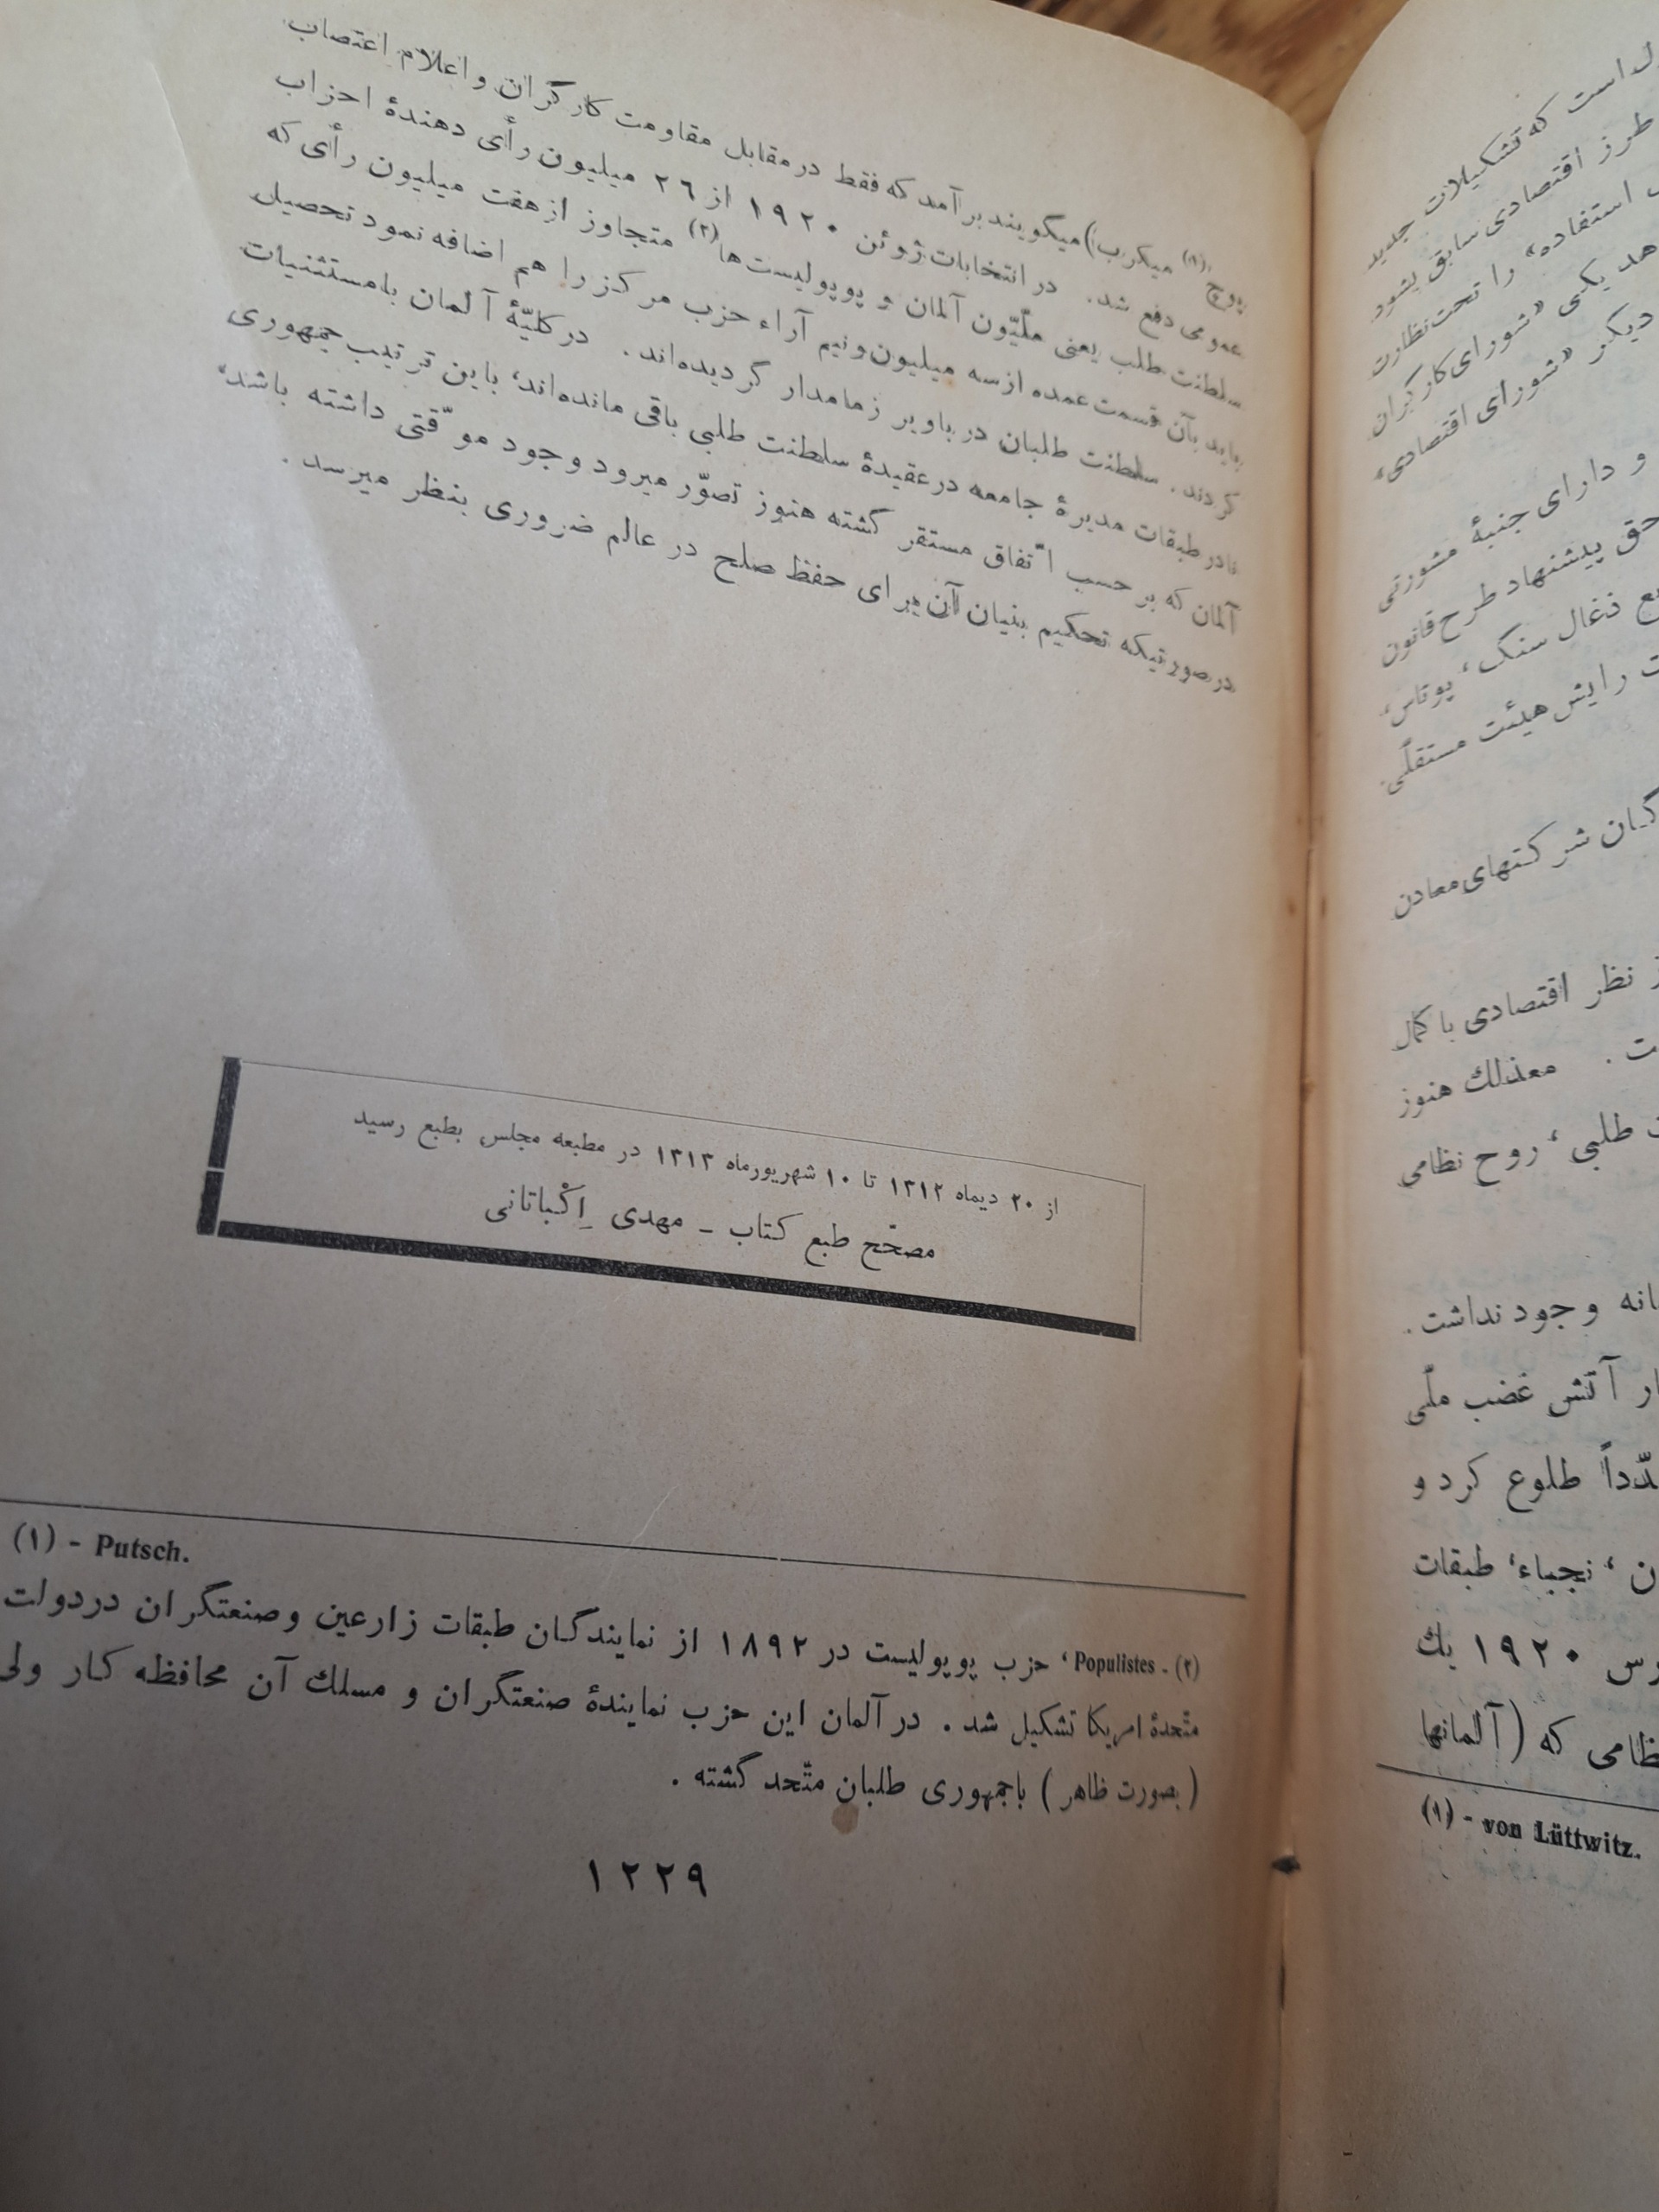 پوچ (۱) میگویند برآمد که فقط در مقابل مقاومت کارگران و اعلام اعتصاب
عمومی دفع شد. در انتخابات ژوئن ۱۹۲۰ از ۲٦ میلیون رأی دهندهٔ احزاب
سلطنت طلب یعنی ملّیّون آلمان و پوپولیست‌ها (۲) متجاوز از هفت میلیون رأی که
باید بآن قسمت عمده از سه میلیون و نیم آراء حزب مرکز را هم اضافه نمود تحصیل
کردند. سلطنت طلبان در باویر زمامدار گردیده‌اند. در کلیّهٔ آلمان با مستثنیات
در طبقات مدیرهٔ جامعه در عقیدهٔ سلطنت طلبی باقی مانده‌اند، باین ترتیب جمهوری
آلمان که بر حسب اتّفاق مستقر گشته هنوز تصوّر میرود وجود موّقتی داشته باشد،
در صورتیکه تحکیم بنیان آن برای حفظ صلح در عالم ضروری بنظر میرسد.
از ۲۰ دیماه ۱۳۱۲ تا ۱۰ شهریورماه ۱۳۱۳ در مطبعه مجلس بطبع رسید
مصحّح طبع کتاب ـ مهدی اِکْباتانی
(۱) - Putsch.
(۲) - Populistes، حزب پوپولیست در ۱۸۹۲ از نمایندگان طبقات زارعین و صنعتگران در دولت
متّحدهٔ امریکا تشکیل شد. در آلمان این حزب نمایندهٔ صنعتگران و مسلك آن محافظه کار ولی
(بصورت ظاهر) با جمهوری طلبان متّحد گشته.
۱۲۲۹
است که تشکیلات جدید
طرز اقتصادی سابق بشود
استفاده» را تحت نظارت
یکی «شورای کارگران
دیگر «شورای اقتصادی»
و دارای جنبهٔ مشورتی
حق پیشنهاد طرح قانون
ذغال سنگ، پوتاس،
رایش هیئت مستقلّی
شرکتهای معادن
نظر اقتصادی با کمال
معذلك هنوز
طلبی، روح نظامی
وجود نداشت.
آتش غضب ملّی
طلوع کرد و
نجباء، طبقات
۱۹۲۰ یك
که (آلمانها
(۱) - von Lüttwitz.